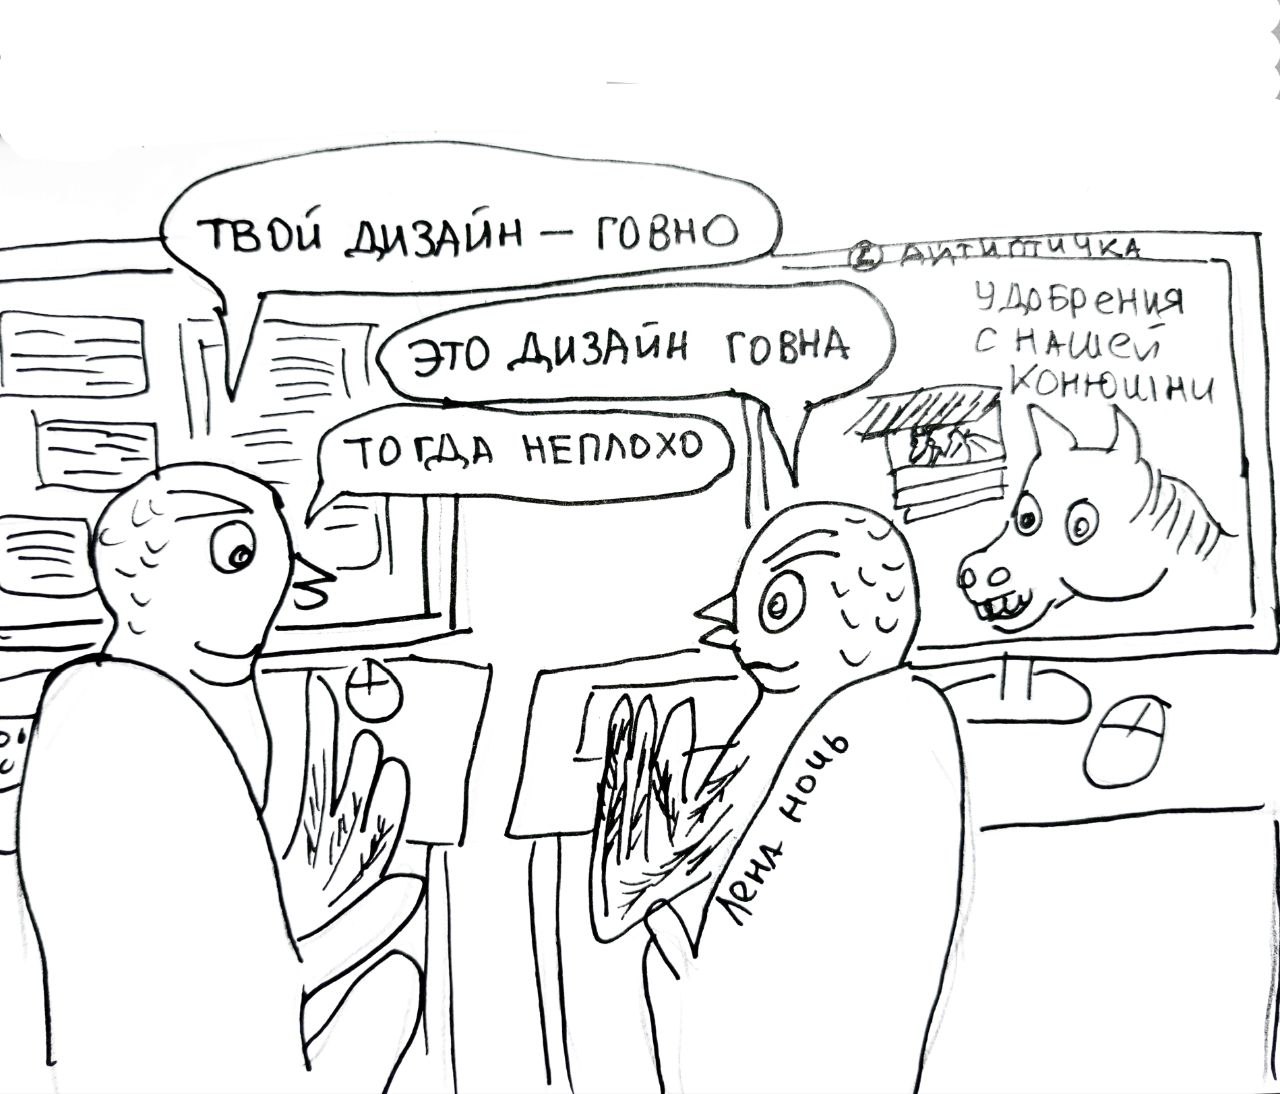 ТВОЙ ДИЗАЙН — ГОВНО
ЭТО ДИЗАЙН ГОВНА
ТОГДА НЕПЛОХО
АНТИПТИЧКА
УДОБРЕНИЯ
С НАШЕЙ
КОНЮШНИ
ЛЕНА НОЧЬ